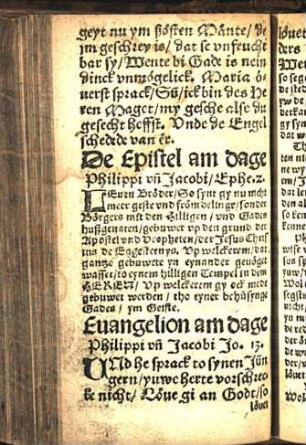 geyt nu ym sösten Mänte/ de
jm geschrey is/ dat se vnfrucht
bar sy/ Wente by Gade is nein
dinck vnmögelick. Maria ö-
uerst sprack/ Sü/ ick bin des He
ren Maget/ my gesche alse du
gesecht heffst. Vnde de Engel
schedede van er.
De Epistel am dage
Philippi vn̄ Jacobi/ Ephe. 2.
LEuen Bröder/ So syn gy nu nicht
meer geste vnd frömdelinge/ sonder
Börgers mit den Hilligen/ vnd Gades
hußgenaten/ gebuwet vp den grund der
Apostel vnd Propheten/ der Jesus Chri
tus de Eggesteyns/ Vp welckerem/ dat
gantze gebuwete yn eynander geuöget
wasset/ tho eynem hilligen Tempel in dem
HEREN/ Vp welckerem gy ock mede
gebuwet werden/ tho eyner behüsinge
Gades/ ym Geiste.
Euangelion am dage
Philippi vn̄ Jacobi Jo. 13.
VNd he sprack to synen Jün
gern/ yuwe herte vorschrec
ke nicht/ Löue gi an Godt/ so
löuet